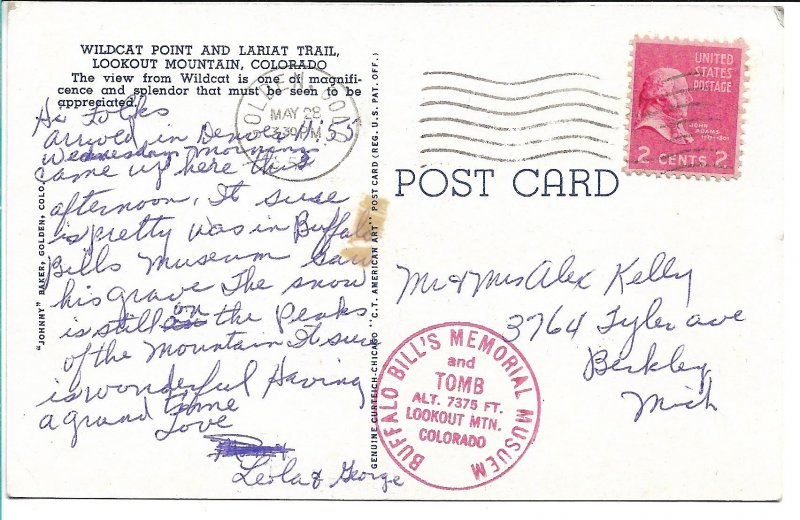 WILDCAT POINT AND LARIAT TRAIL,
LOOKOUT MOUNTAIN, COLORADO
The view from Wildcat is one of magnifi-
cence and splendor that must be seen to be
appreciated.
Hi Folks
arrived in Denver 11:55
Wednesday morning
came up here this
afternoon, It sure
is pretty was in Buffalo
Bills Museum saw
his grave The snow
is still on the Peaks
of the Mountain It sure
is wonderful Having
a grand time
Love
Leola & George
"JOHNNY" BAKER, GOLDEN, COLO.
GENUINE CURTEICH-CHICAGO "C.T. AMERICAN ART" POST CARD (REG. U.S. PAT. OFF.)
GOLDEN COLO.
MAY 28
3 30 PM
UNITED
STATES
POSTAGE
JOHN
ADAMS
1797-1801
2 CENTS 2
POST CARD
Mr & Mrs Alex Kelly
3764 Tyler ave
Berkley
Mich
BUFFALO BILL'S MEMORIAL MUSUEM
and
TOMB
ALT. 7375 FT.
LOOKOUT MTN.
COLORADO